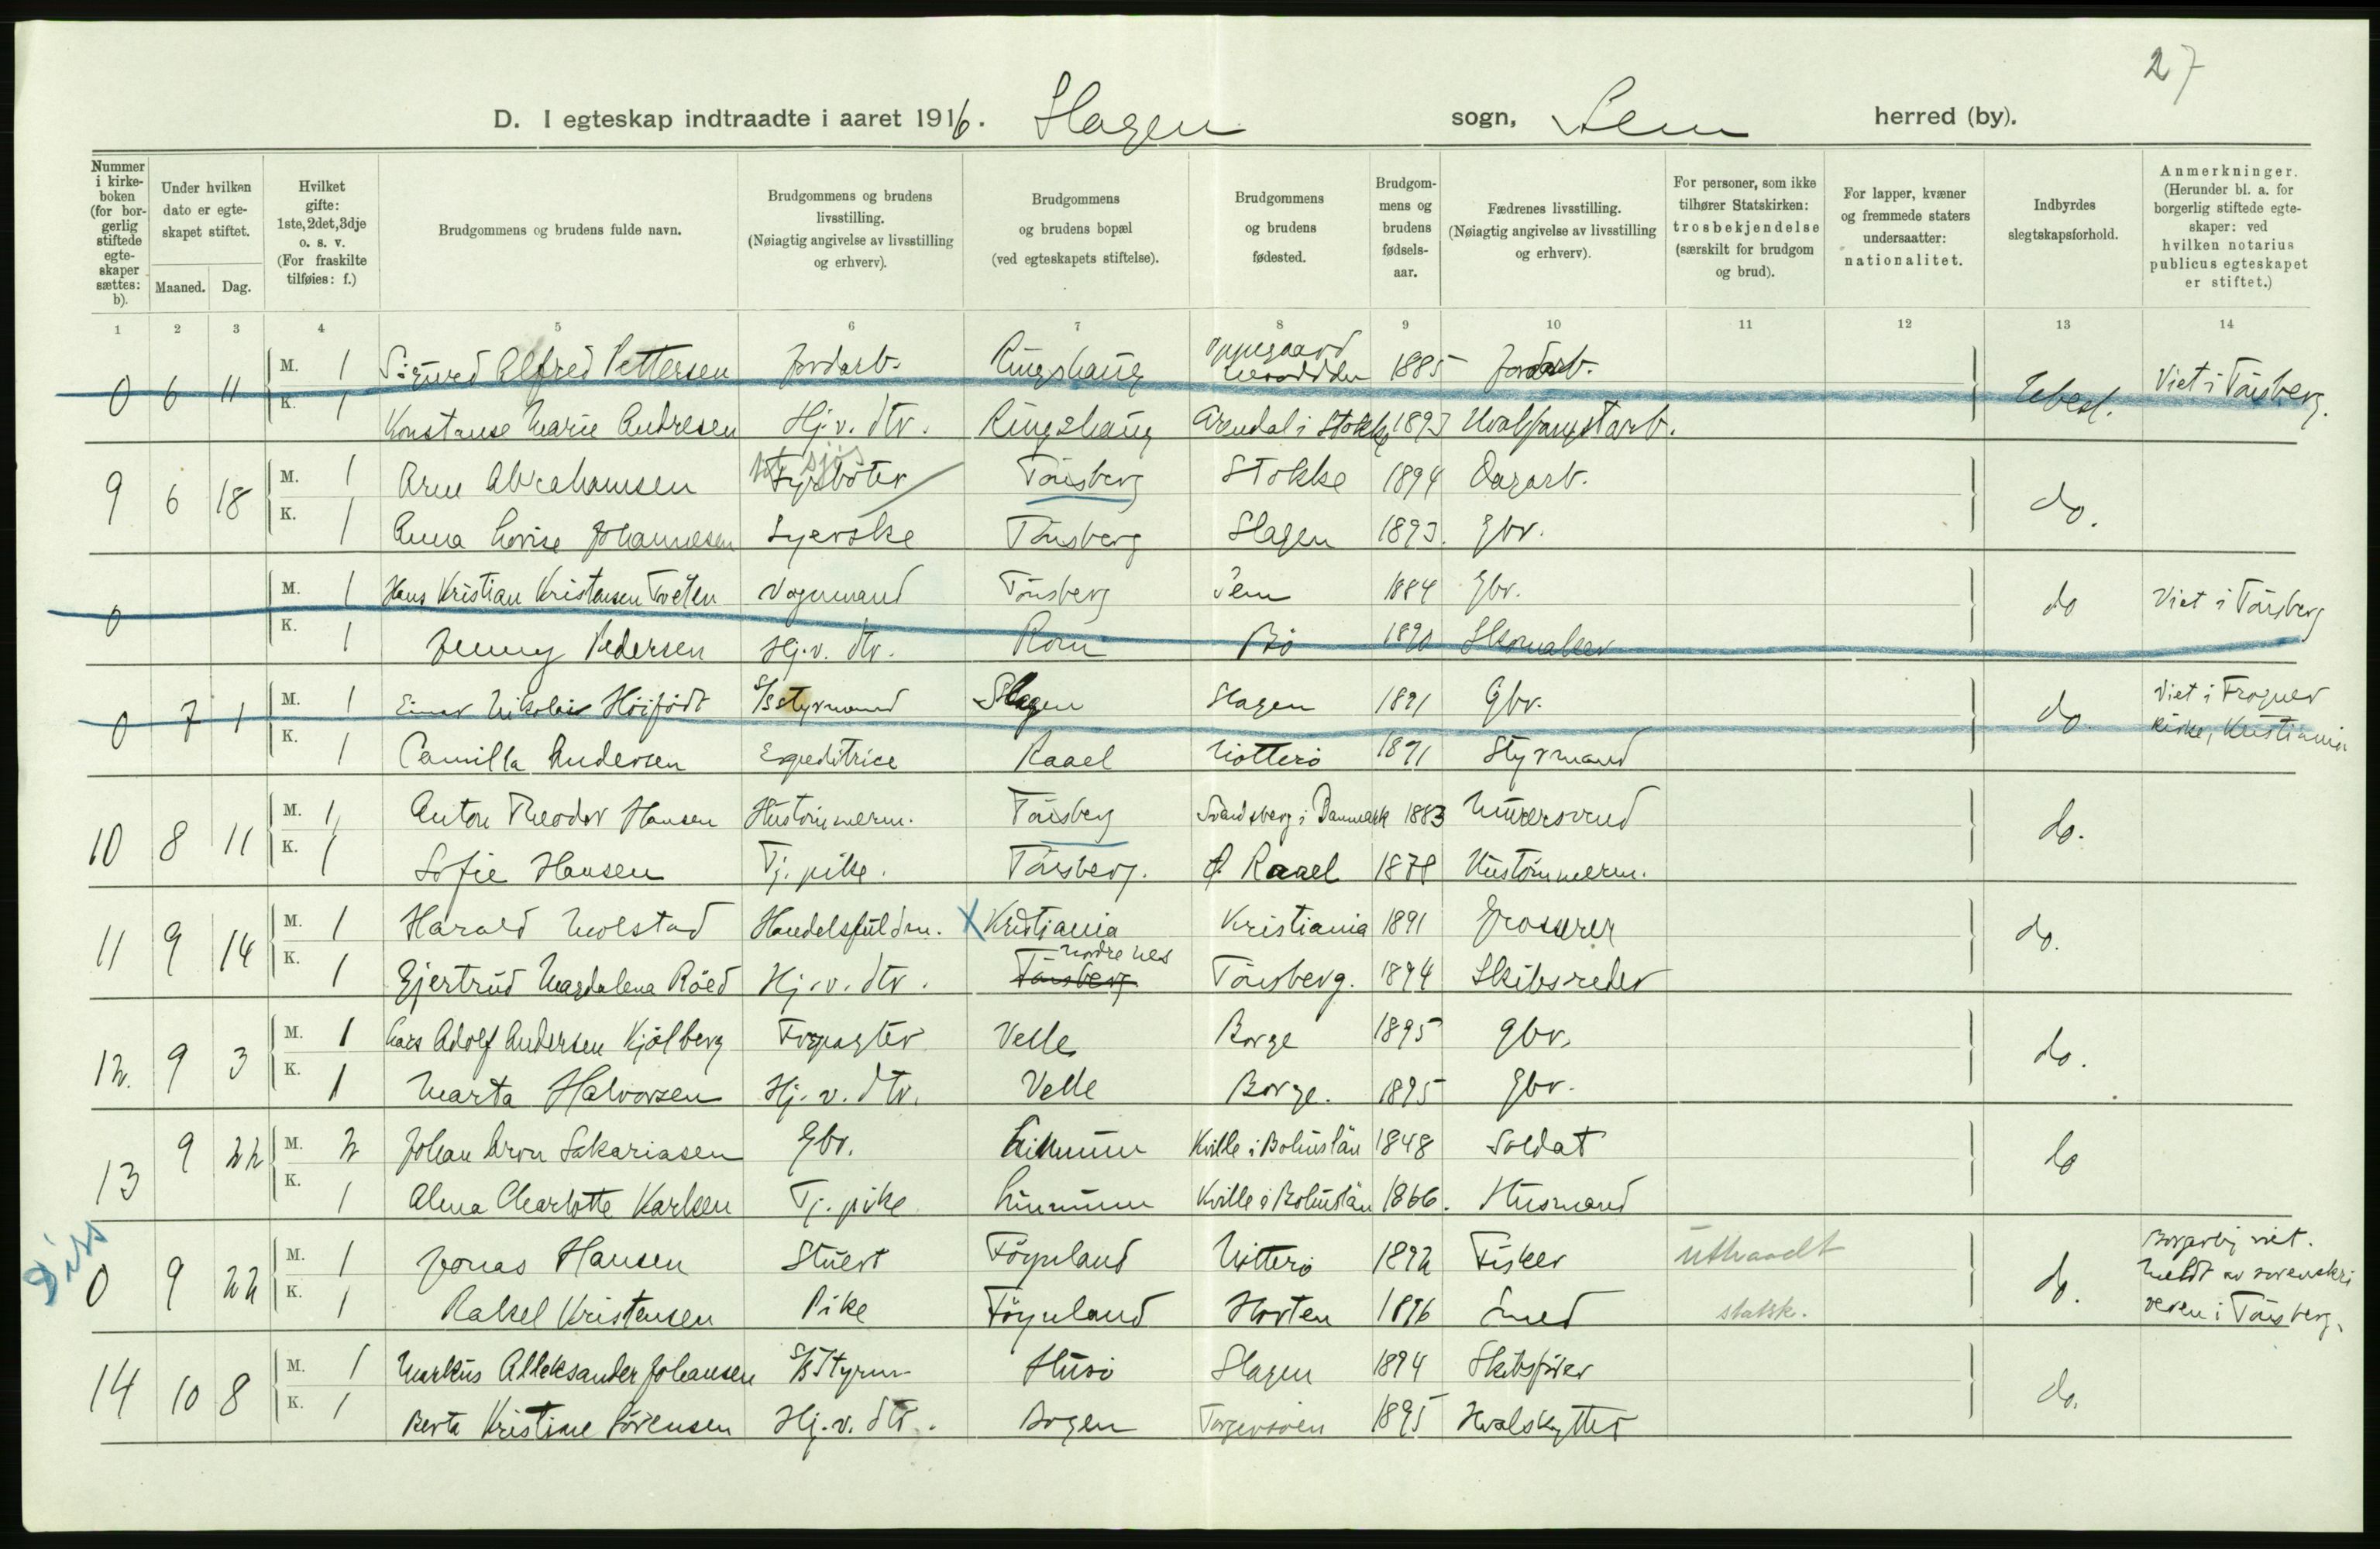 27
D. I egteskap indtraadte i aaret 1916. Slagen sogn, Sem herred (by).
Nummer i kirkeboken (for borgerlig stiftede egteskaper sættes: b).
Under hvilken dato er egteskapet stiftet.
Maaned. Dag.
Hvilket gifte: 1ste, 2det, 3dje o. s. v. (For fraskilte tilføies: f.)
Brudgommens og brudens fulde navn.
Brudgommens og brudens livsstilling. (Nøiagtig angivelse av livsstilling og erhverv).
Brudgommens og brudens bopæl (ved egteskapets stiftelse).
Brudgommens og brudens fødested.
Brudgommens og brudens fødselsaar.
Fædrenes livsstilling. (Nøiagtig angivelse av livsstilling og erhverv).
For personer, som ikke tilhører Statskirken: trosbekjendelse (særskilt for brudgom og brud).
For lapper, kvæner og fremmede staters undersaatter: nationalitet.
Indbyrdes slegtskapsforhold.
Anmerkninger. (Herunder bl. a. for borgerlig stiftede egteskaper: ved hvilken notarius publicus egteskapet er stiftet.)
1 2 3 4 5 6 7 8 9 10 11 12 13 14
0 6 11 M. 1 Sigurd Alfred Pettersen Jordarb. Ringshaug Oppegaard Nesodden 1885 Jordarb. Ubesl. Viet i Tønsberg.
K. 1 Konstanse Marie Andresen Hj. v. dtr. Ringshaug Arendal i Stokke 1893 Hvalfangstarb.
9 6 18 M. 1 Arne Abrahamsen Fyrbøter Tønsberg Stokke 1894 Dagarb. do.
K. 1 Anna Lovise Johannesen Syerske Tønsberg Slagen 1893. Gbr.
0 M. 1 Hans Kristian Kristensen Tveten Vognmand Tønsberg Sem 1884 Gbr. do Viet i Tønsberg
K. 1 Jenny Pedersen Hj. v. dtr. Rom Bø 1890 Skomaker
0 7 1 M. 1 Einar Nikolai Höijødt S/S styrmand Slagen Slagen 1891 Gbr. do. Viet i Frogner kirke, Kristiania
K. 1 Camilla Andersen Expeditrice Raael Nøtterø 1891 Styrmand
10 8 11 M. 1 Anton Theodor Hansen Hustømmerm. Tønsberg Svandsberg i Danmark 1883 Murersvend do.
K. 1 Sofie Hansen Tj. pike. Tønsberg. Raael 1878 Hustømmerm.
11 9 14 M. 1 Harald Molstad Handelsfuldm. X Kristiania Kristiania 1891 Grosserer do.
K. 1 Gjertrud Magdalena Röed Hj. v. dtr. Tønsberg Nordre nes Tønsberg. 1894 Skibsreder
12. 9 3 M. 1 Lars Adolf Andersen Kjølberg Forpagter Velle Borge 1895 gbr. do.
K. 1 Marta Halvorsen Hj. v. dtr. Velle Borge. 1895 Gbr.
13 9 22 M. 2 Johan Aron Sakariasen Gbr. Linnum Kville i Bohuslän 1848 Soldat do
K. 1 Alma Charlotte Karlsen Tj. pike Linnum Kville i Bohuslän 1866. Husmand
Diss
0 9 22 M. 1 Jonas Hansen Stuert Föynland Nøtterø 1892 Fisker uthaadt do. Borgerlig viet. Meldt av sorenskriveren i Tønsberg.
K. 1 Rakel Kristensen Pike Föynland Horten 1896 Smed statsk.
14 10 8 M. 1 Markus Alleksander Johansen S/S Styrm. Husø Slagen 1894 Skibsfører do.
K. 1 Berta Kristine Sörensen Hj. v. dtr. Borgen Torgersøen 1895 Hvalskytter